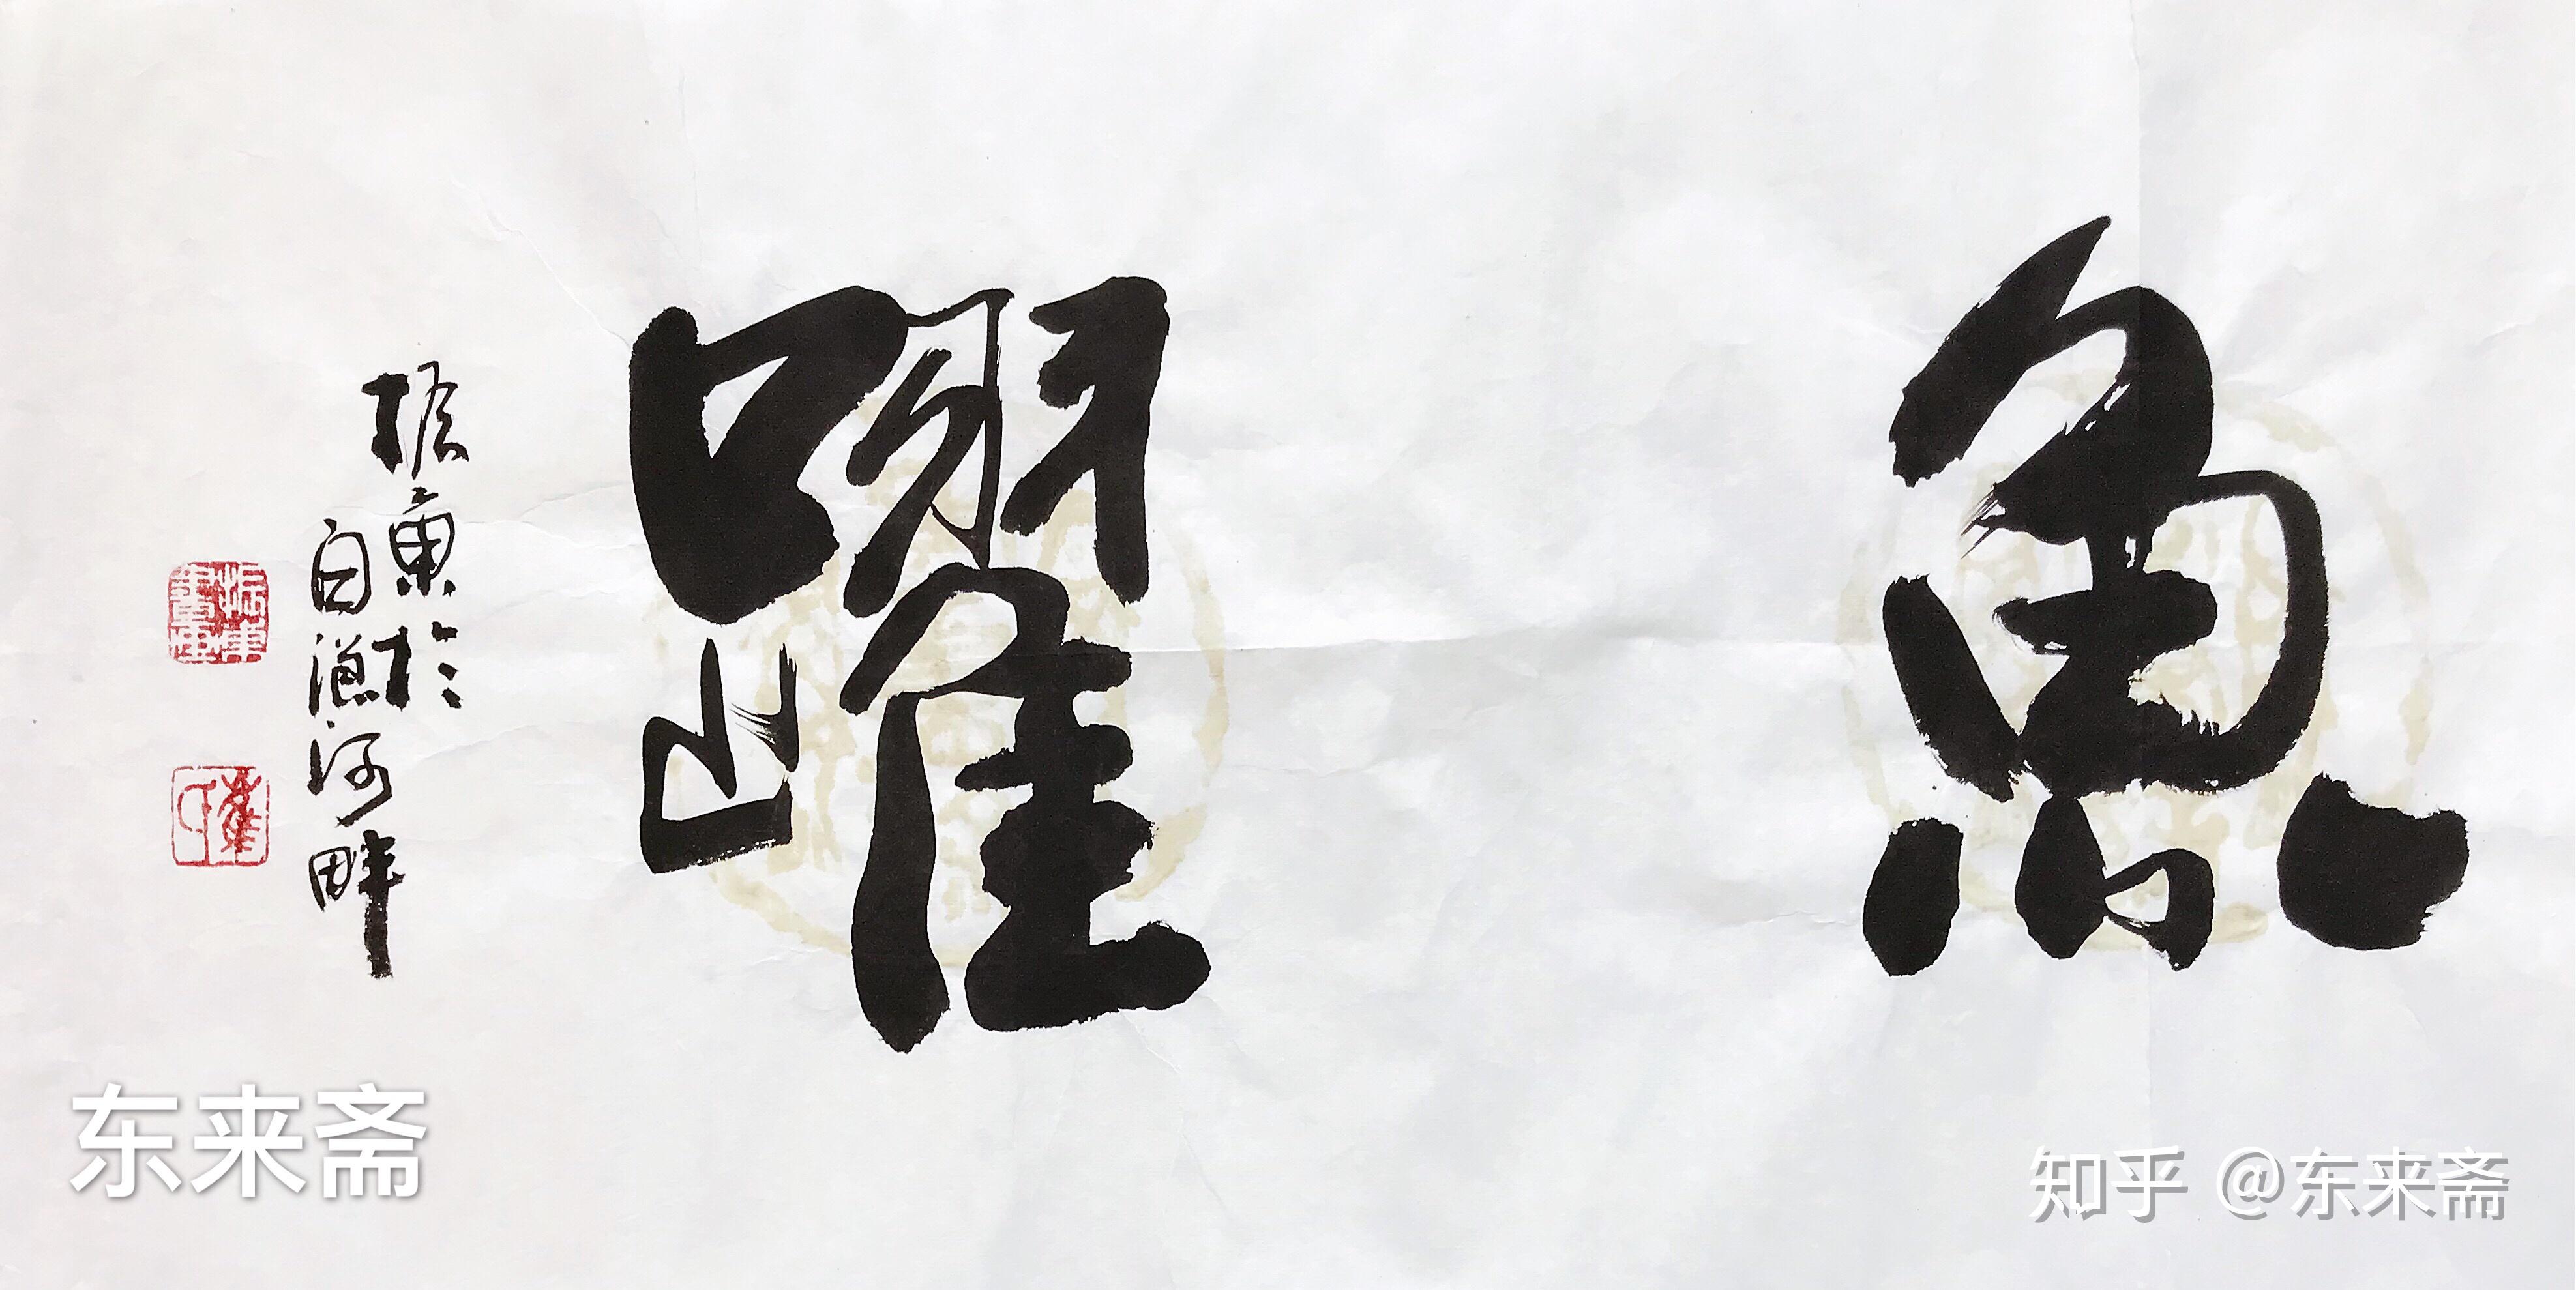 魚躍
振東於
白漁河畔
振東書畫
东来斋
知乎 @东来斋